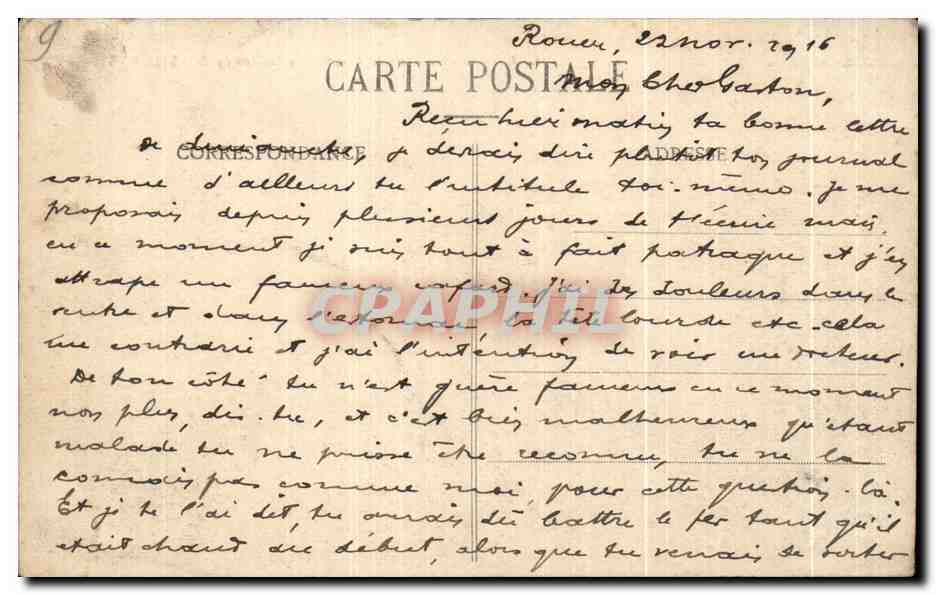 9
Rouen, 22 nov. 1916
CARTE POSTALE
Mon Cher Gaston,
Reçu hier matin ta bonne lettre
CORRESPONDANCE
ADRESSE
de dimanche, je devrais dire plutôt ton journal
comme d'ailleurs tu l'intitule toi-même. Je me
proposais depuis plusieurs jours de t'écrire mais,
en ce moment je suis tout à fait patraque et j'en
attrape un fameux cafard. J'ai des douleurs dans le
ventre et dans l'estomac, la tête lourde etc. cela
me contrarie et j'ai l'intention de voir un docteur.
CPAPHIL
De ton côté tu n'est guère fameux en ce moment
non plus, dis-tu, et c'est bien malheureux qu'étant
malade tu ne puisse être reconnu, tu ne la
connais pas comme moi, pour cette question-là.
Et je te l'ai dit, tu aurais dû battre le fer tant qu'il
était chaud au début, alors que tu venais de sortir